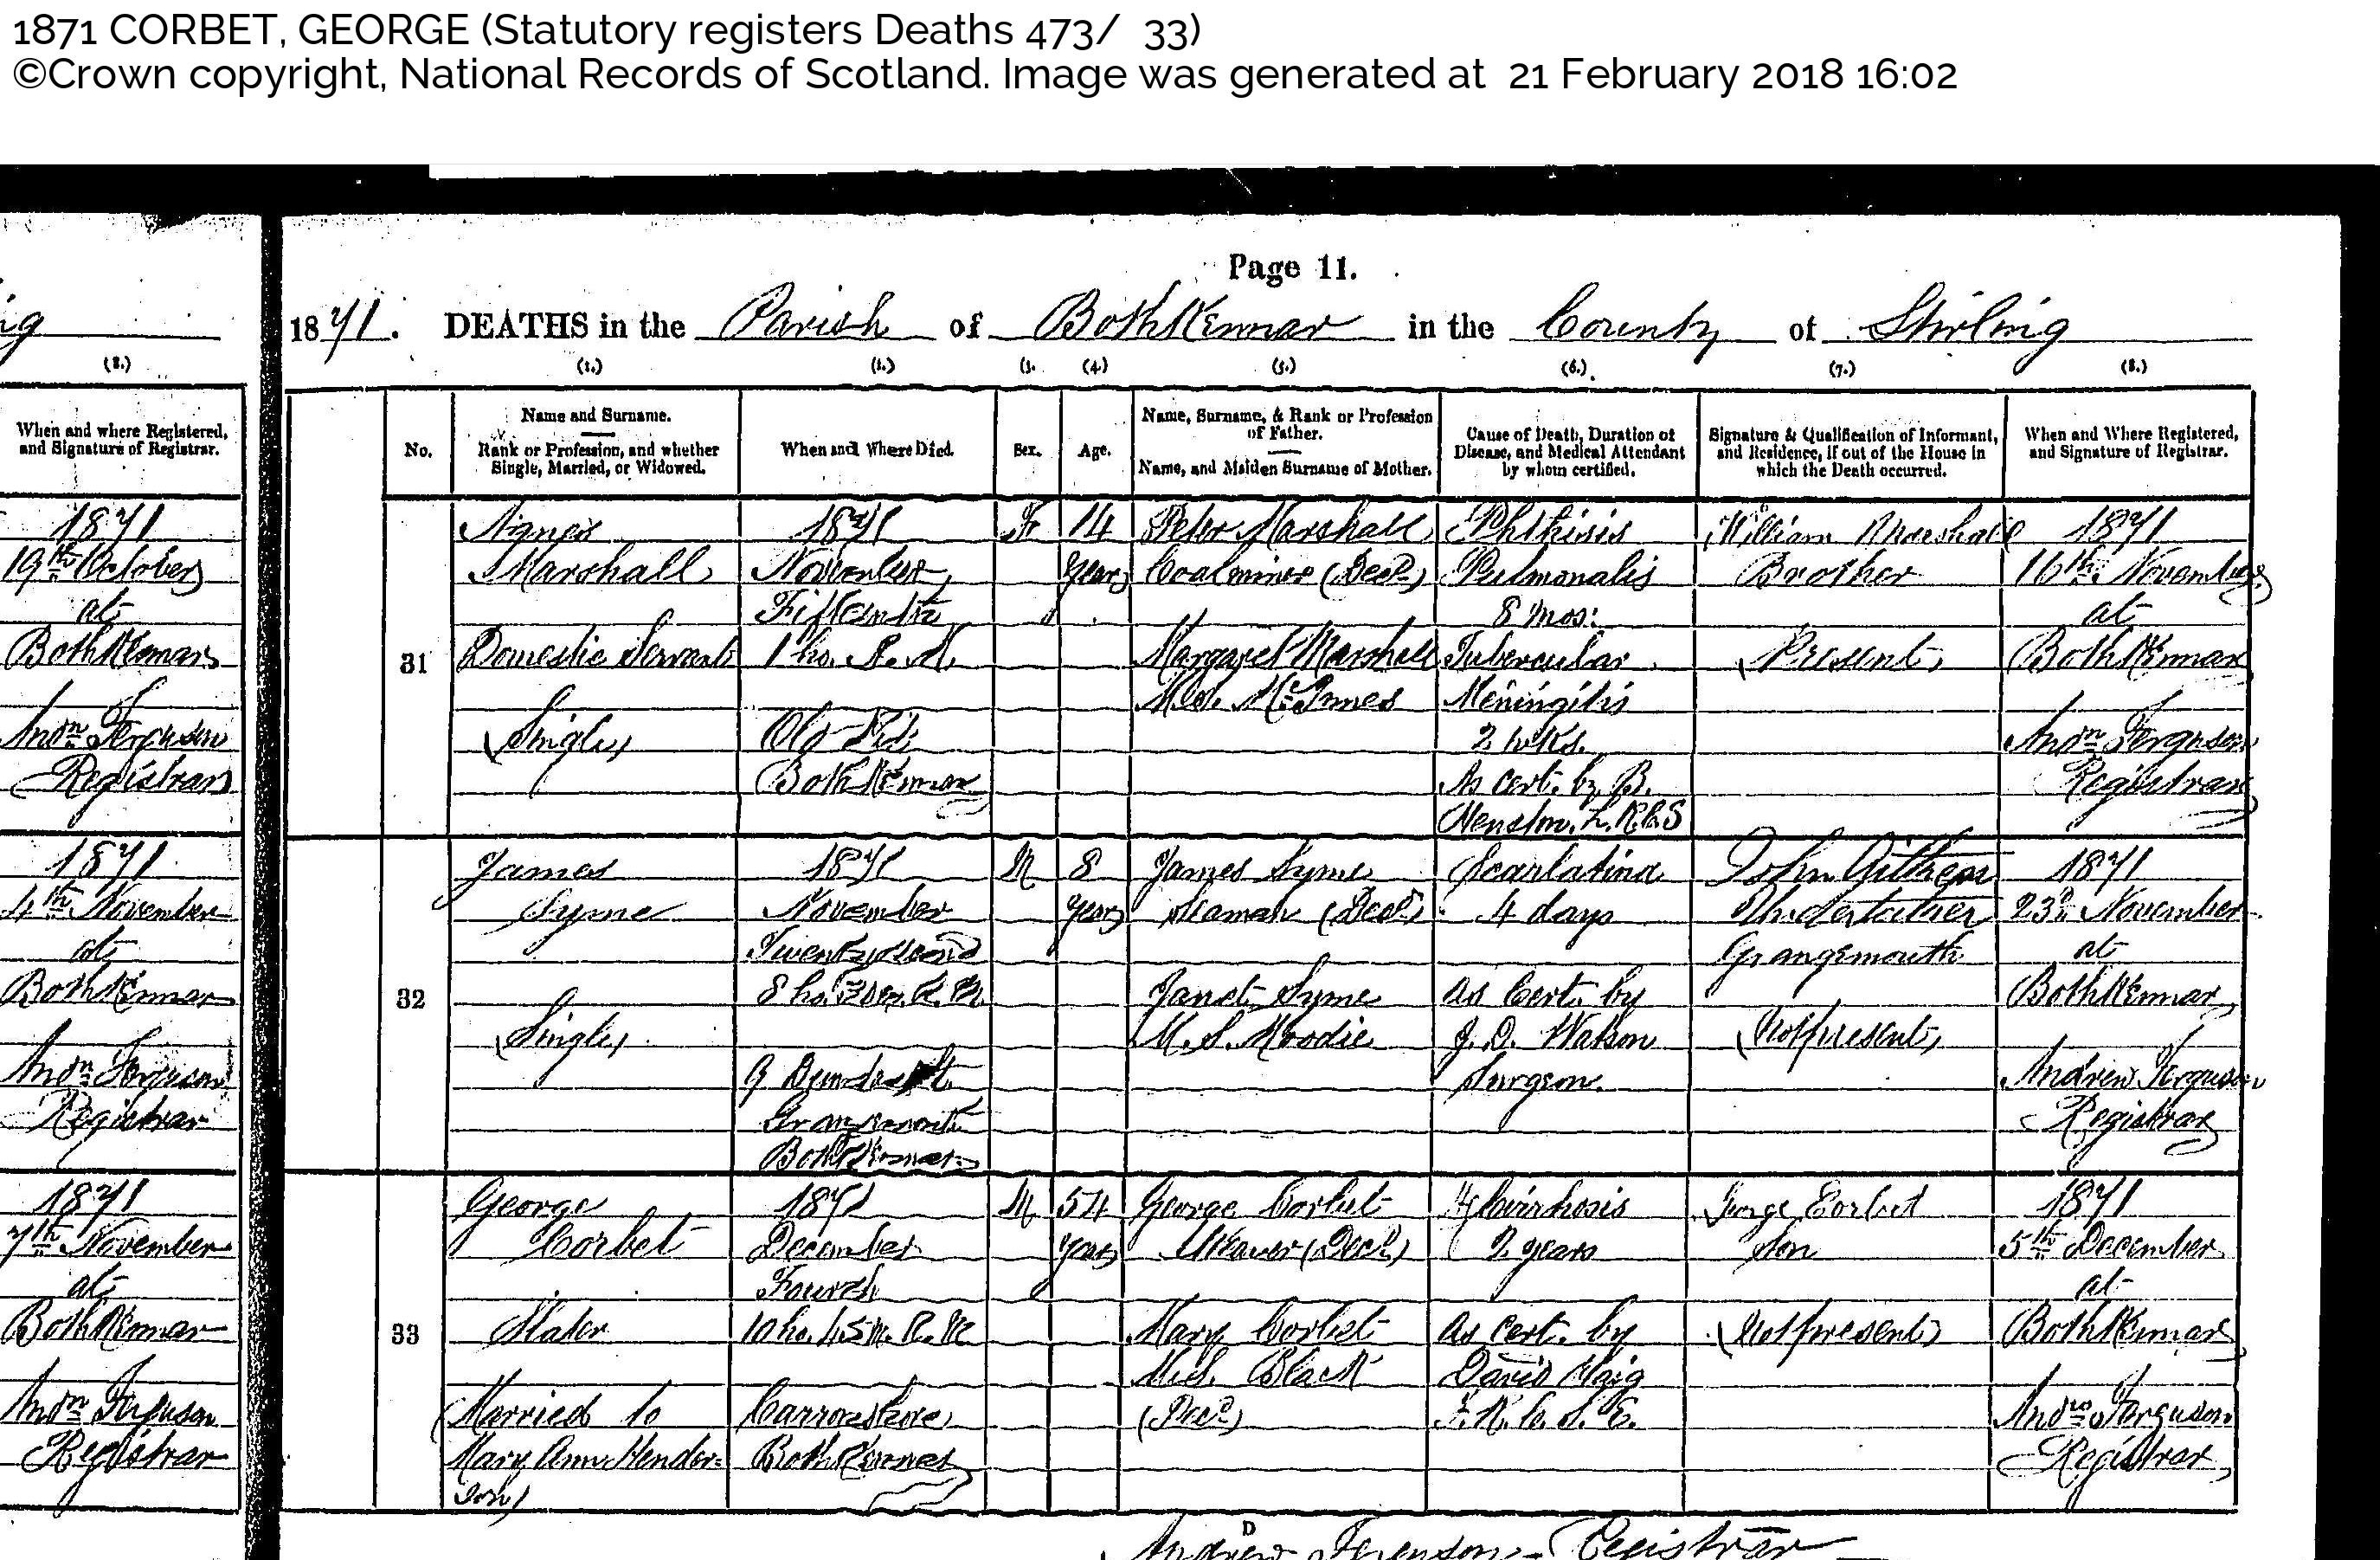 1871 CORBET, GEORGE (Statutory registers Deaths 473/ 33)
©Crown copyright, National Records of Scotland. Image was generated at 21 February 2018 16:02
Page 11.
1871. DEATHS in the Parish of Bothkennar in the County of Stirling
(8.) (1.) (2.) (3. (4.) (5.) (6.) (7.) (8.)
When and where Registered,
and Signature of Registrar.
No.
Name and Surname.
Rank or Profession, and whether
Single, Married, or Widowed.
When and Where Died.
Sex.
Age.
Name, Surname, & Rank or Profession
of Father.
Name, and Maiden Surname of Mother.
Cause of Death, Duration of
Disease, and Medical Attendant
by whom certified.
Signature & Qualification of Informant,
and Residence, if out of the House in
which the Death occurred.
When and Where Registered,
and Signature of Registrar.
1871
19th October
at
Bothkennar
Andw Ferguson
Registrar
31
Agnes
Marshall
Domestic Servant
(Single)
1871
November
Fifteenth
1 ho.
Old
Bothkennar
F
14
Years
Peter Marshall
Coalminer (Decd)
Margaret Marshall
McInnes
Phthisis
Pulmonalis
8 mos:
Tubercular
Meningitis
2 wks.
As cert. by B.
William Marshall
Brother
(Present)
1871
16th November
at
Bothkennar
Andw Ferguson
Registrar
1871
4th November
at
Bothkennar
Andw Ferguson
Registrar
32
James
Syme
(Single)
1871
November
Twenty second
8 ho.
9
Grangemouth
Bothkennar
M
8
Years
James Syme
Seaman (Decd)
Janet Syme
M.S. Moodie
Scarlatina
4 days
as Cert. by
J. D. Watson
Surgeon.
John
Undertaker
Grangemouth
(Not present)
1871
23d November
at
Bothkennar
Andrew Ferguson
Registrar
1871
7th November
at
Bothkennar
Andw Ferguson
Registrar
33
George
Corbet
Slater
(Married to
Mary Ann Hender-
son)
1871
December
Fourth
10 ho. 45 m.
Carronshore
Bothkennar
M
54
Years
George Corbet
Weaver (Decd)
Mary Corbet
M.S. Black
(Decd)
Cirrhosis
2 years
as cert. by
David Haig
F.R.C.S.E.
George Corbet
Son
(Not present)
1871
5th December
at
Bothkennar
Andw Ferguson
Registrar
D
Andrew Ferguson, Registrar